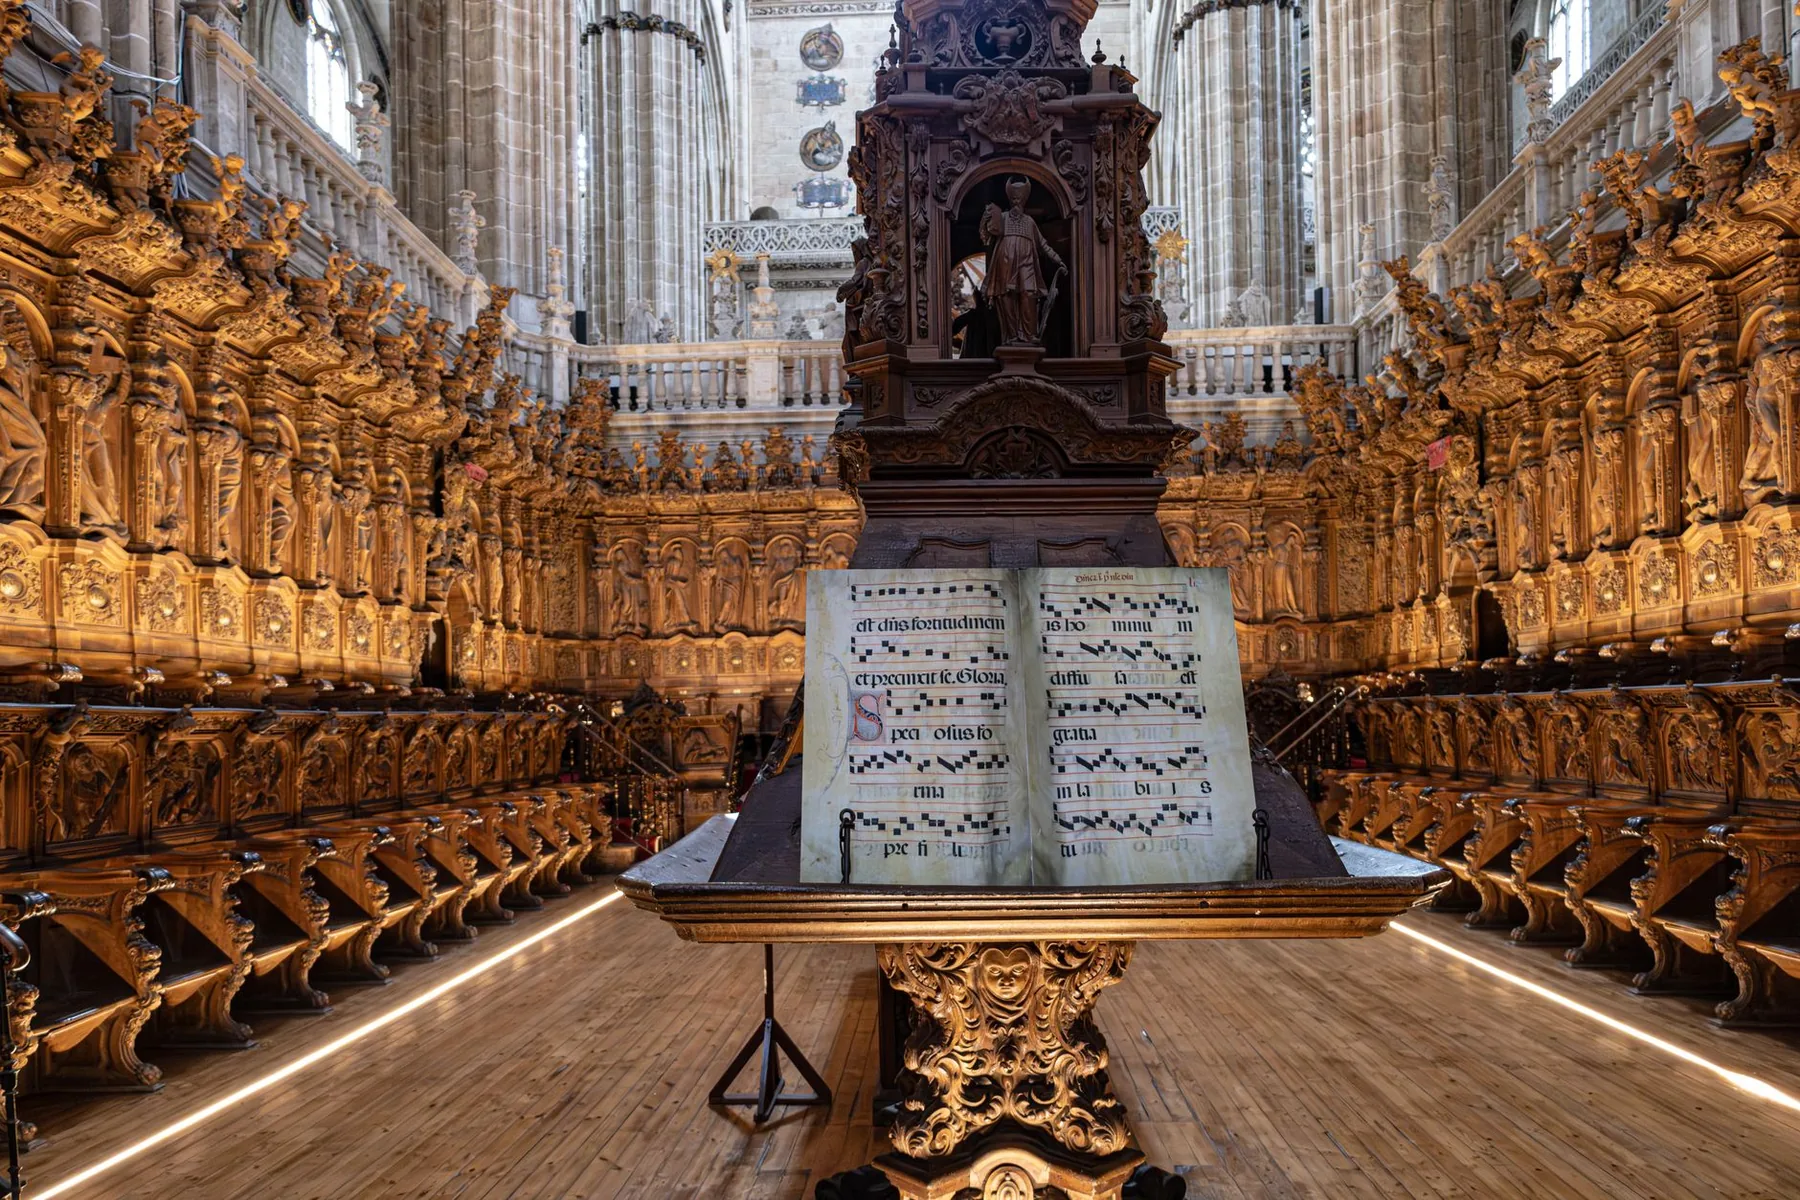 est dñs fortitudinem
et precinxit se. Gloria.
S peci osus fo
rma
pre fi
is ho minu m
diffu sa est
gratia
in la bi i s
tu